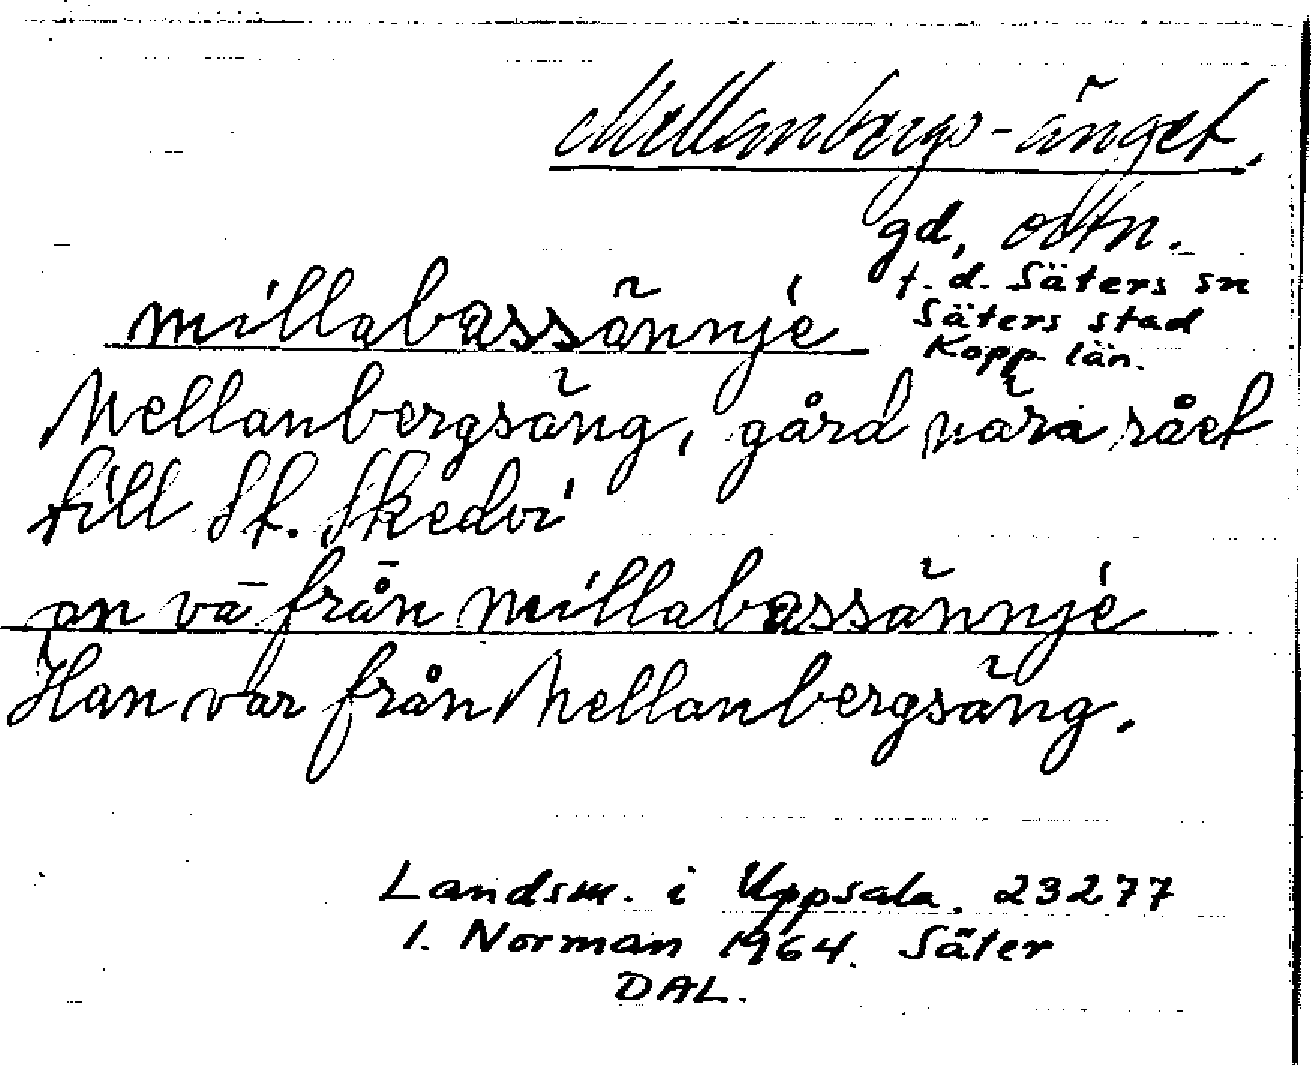 Mellanbergs-änget.
gd, ode n.
f. d. Säters sn
Säters stad
Kopp. län.
millabassännje
Mellanbergsäng, gård nära rået
till St. Skedvi
an vā från millabassännje
Han var från Mellanbergsäng.
Landsm. i Uppsala. 23277
I. Norman 1964. Säter
DAL.